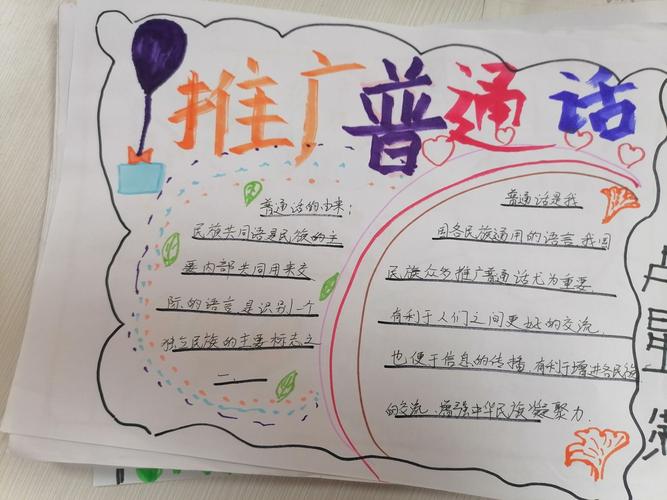 推广普通话
普通话的由来：
民族共同语是民族的主
要内部共同用来交
际的语言是识别一个
独立民族的主要标志之
一．
普通话是我
国各民族通用的语言，我国
民族众多推广普通话尤为重要
有利于人们之间更好的交流．
也便于信息的传播，有利于增进各民族
的交流，增强中华民族凝聚力．